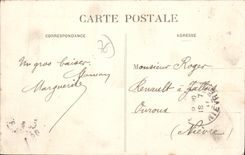 CARTE POSTALE
CORRESPONDANCE
ADRESSE
Un gros baiser
Marguerite
Monsieur Roger
Renault à
Ouroux
(Nièvre)